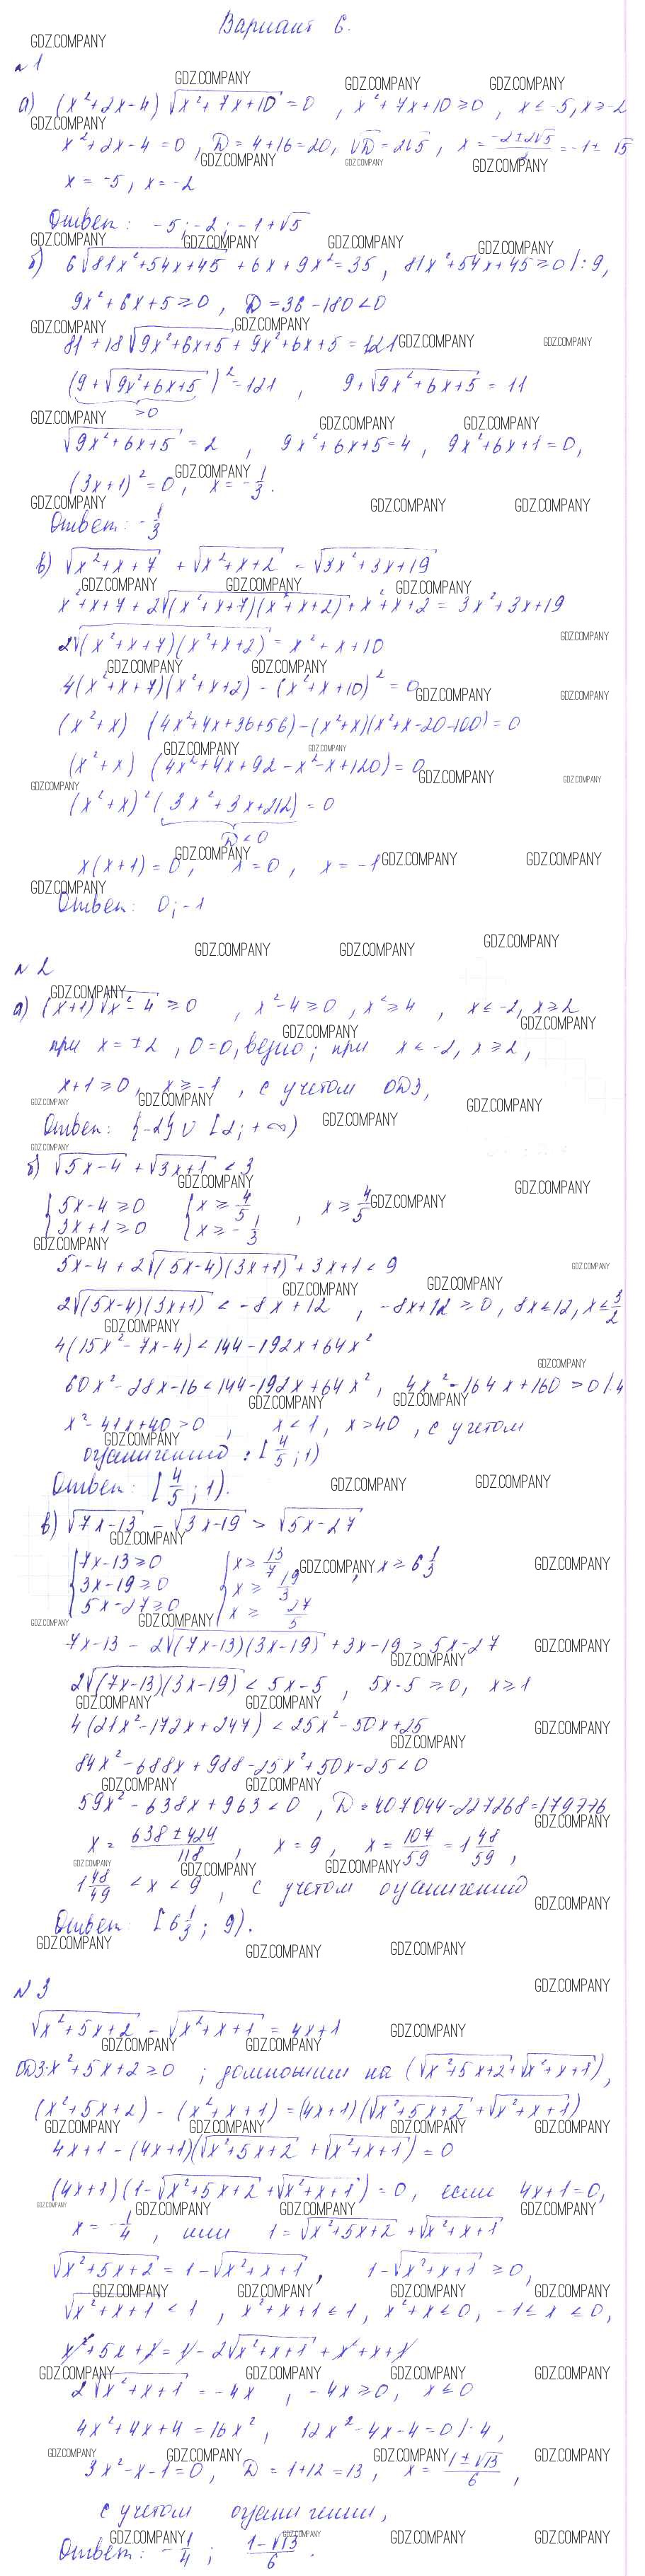 Вариант 6.
GDZ.COMPANY
№ 1
а) (x²+2x-4)√(x²+7x+10) = 0 , x²+7x+10 ≥ 0 , x ≤ -5, x ≥ -2
x²+2x-4 = 0 , D = 4+16 = 20, √D = 2√5 , x = (-2±2√5)/2 = -1±√5
x = -5 , x = -2
Ответ: -5 ; -2 ; -1+√5
б) 6√(81x²+54x+45) + 6x + 9x² = 35 , 81x²+54x+45 ≥ 0 |:9,
9x²+6x+5 ≥ 0 , D = 36-180 < 0
81 + 18√(9x²+6x+5) + 9x²+6x+5 = 121
(9+√(9x²+6x+5))² = 121 , 9+√(9x²+6x+5) = 11
>0
√(9x²+6x+5) = 2 , 9x²+6x+5=4 , 9x²+6x+1=0,
(3x+1)² = 0, x = -1/3.
Ответ: -1/3
в) √(x²+x+7) + √(x²+x+2) = √(3x²+3x+19)
x²+x+7 + 2√((x²+x+7)(x²+x+2)) + x²+x+2 = 3x²+3x+19
2√((x²+x+7)(x²+x+2)) = x²+x+10
4(x²+x+7)(x²+x+2) - (x²+x+10)² = 0
(x²+x) (4x²+4x+36+56) - (x²+x)(x²+x-20-100) = 0
(x²+x) (4x²+4x+92-x²-x+120) = 0
(x²+x)²(3x²+3x+212) = 0
D < 0
x(x+1) = 0, x = 0 , x = -1
Ответ: 0 ; -1
№ 2
а) (x+1)√(x²-4) ≥ 0 , x²-4 ≥ 0 , x² ≥ 4 , x ≤ -2, x ≥ 2
при x = ±2 , 0=0, верно ; при x ≤ -2, x ≥ 2,
x+1 ≥ 0 , x ≥ -1 , с учетом ОДЗ,
Ответ: {-2} ∪ [2 ; +∞)
б) √(5x-4) + √(3x+1) < 3
{5x-4 ≥ 0 {x ≥ 4/5 , x ≥ 4/5
{3x+1 ≥ 0 {x ≥ -1/3
5x-4 + 2√((5x-4)(3x+1)) + 3x+1 < 9
2√((5x-4)(3x+1)) < -8x+12 , -8x+12 ≥ 0 , 8x ≤ 12, x ≤ 3/2
4(15x²-7x-4) < 144-192x+64x²
60x²-28x-16 < 144-192x+64x² , 4x²-164x+160 > 0 |:4
x²-41x+40 > 0 , x < 1 , x > 40 , с учетом
ограничений : [4/5 ; 1)
Ответ: [4/5 ; 1).
в) √(7x-13) - √(3x-19) > √(5x-27)
{7x-13 ≥ 0 {x ≥ 13/7 , x ≥ 6 1/3
{3x-19 ≥ 0 {x ≥ 19/3
{5x-27 ≥ 0 {x ≥ 27/5
7x-13 - 2√((7x-13)(3x-19)) + 3x-19 > 5x-27
2√((7x-13)(3x-19)) < 5x-5 , 5x-5 ≥ 0, x ≥ 1
4(21x²-172x+247) < 25x²-50x+25
84x²-688x+988-25x²+50x-25 < 0
59x²-638x+963 < 0 , D = 407044-227268 = 179776
x = (638±424)/118 , x = 9 , x = 107/59 = 1 48/59 ,
1 48/49 < x < 9 , с учетом ограничений
Ответ: [6 1/3 ; 9).
№ 3
√(x²+5x+2) - √(x²+x+1) = 4x+1
ОДЗ: x²+5x+2 ≥ 0 ; домножим на (√(x²+5x+2)+√(x²+x+1)),
(x²+5x+2) - (x²+x+1) = (4x+1)(√(x²+5x+2) + √(x²+x+1))
4x+1 - (4x+1)(√(x²+5x+2) + √(x²+x+1)) = 0
(4x+1)(1-√(x²+5x+2) + √(x²+x+1)) = 0, если 4x+1=0,
x = -1/4 , или 1 = √(x²+5x+2) + √(x²+x+1)
√(x²+5x+2) = 1-√(x²+x+1) , 1-√(x²+x+1) ≥ 0,
√(x²+x+1) ≤ 1 , x²+x+1 ≤ 1, x²+x ≤ 0, -1 ≤ x ≤ 0,
x²+5x+2 = 1-2√(x²+x+1) + x²+x+1
2√(x²+x+1) = -4x , -4x ≥ 0, x ≤ 0
4x²+4x+4 = 16x² , 12x²-4x-4 = 0 |:4,
3x²-x-1 = 0 , D = 1+12 = 13 , x = (1±√13)/6 ,
с учетом ограничений,
Ответ: -1/4 ; (1-√13)/6 .